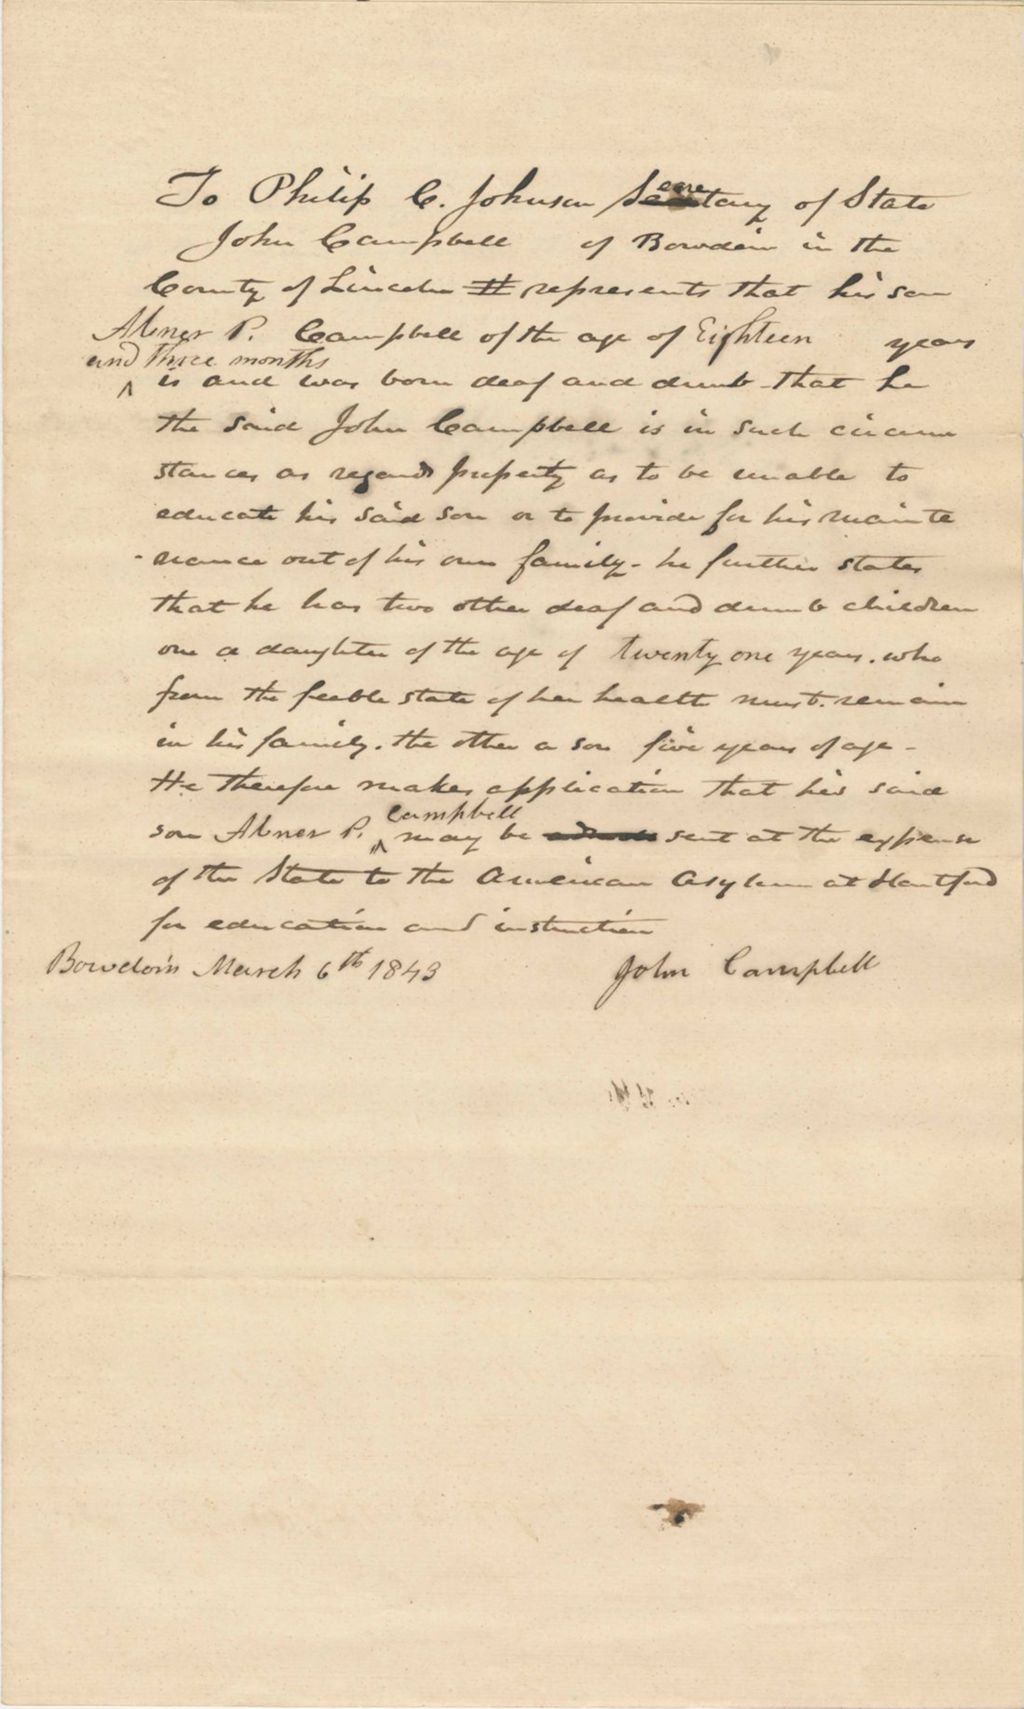 To Philip C. Johnson Secretary of State
John Campbell of Bowdoin in the
County of Lincoln represents that his son
Abner P. Campbell of the age of Eighteen years
and three months
^ is and was born deaf and dumb that he
the said John Campbell is in such circum
stances as regards property as to be unable to
educate his said son or to provide for his mainte
-nance out of his own family - he further states
that he has two other deaf and dumb children
one a daughter of the age of twenty one years. who
from the feeble state of her health must remain
in his family. the other a son five years of age -
He therefore makes application that his said
son Abner P. ^ Campbell may be sent at the expense
of the State to the American Asylum at Hartford
for education and instruction
Bowdoin March 6th 1843 John Campbell